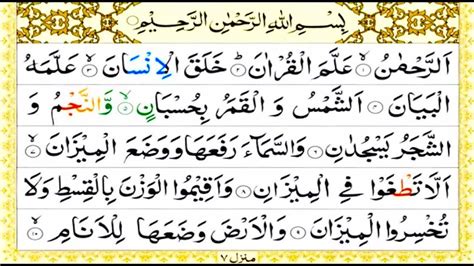 بِسْمِ اللهِ الرَّحْمٰنِ الرَّحِيْمِ
اَلرَّحْمٰنُ ۝۱ عَلَّمَ الْقُرْاٰنَ ۝۲ خَلَقَ الْاِنْسَانَ ۝۳ عَلَّمَهُ
الْبَيَانَ ۝۴ اَلشَّمْسُ وَ الْقَمَرُ بِحُسْبَانٍ ۝۵ وَّالنَّجْمُ وَ
الشَّجَرُ يَسْجُدٰنِ ۝۶ وَالسَّمَآءَ رَفَعَهَا وَوَضَعَ الْمِيْزَانَ ۝۷
اَلَّا تَطْغَوْا فِي الْمِيْزَانِ ۝۸ وَاَقِيْمُوا الْوَزْنَ بِالْقِسْطِ وَلَا
تُخْسِرُوا الْمِيْزَانَ ۝۹ وَالْاَرْضَ وَضَعَهَا لِلْاَنَامِ ۝۱۰
منزل ۷